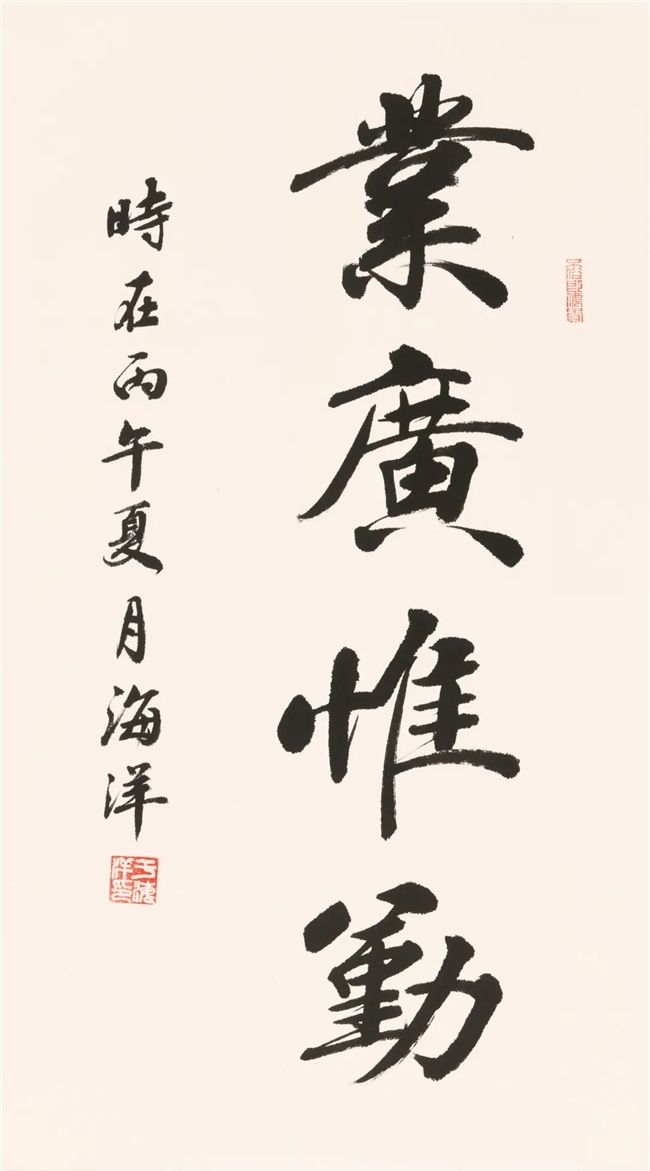 業廣惟勤
時在丙午夏月海洋